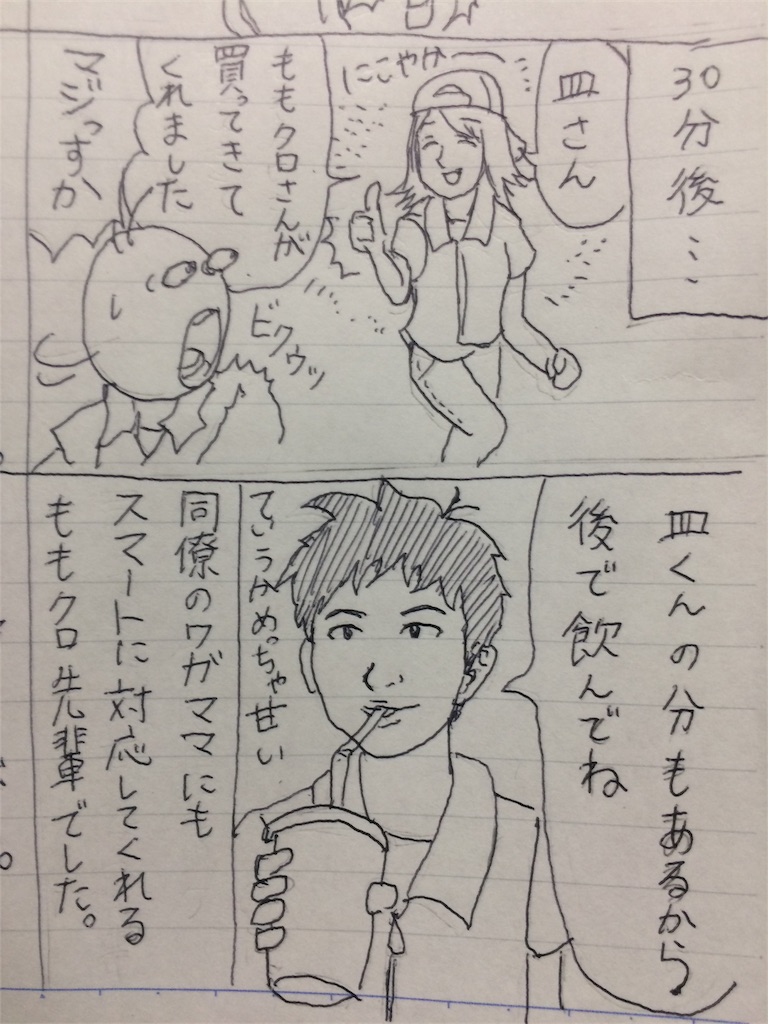 30分後…
皿さん
にこやかー
ももクロさんが
買ってきて
くれました
マジっすか
ビクウッ
皿くんの分もあるから
後で飲んでね
ていうかめっちゃ甘い
同僚のワガママにも
スマートに対応してくれる
ももクロ先輩でした。